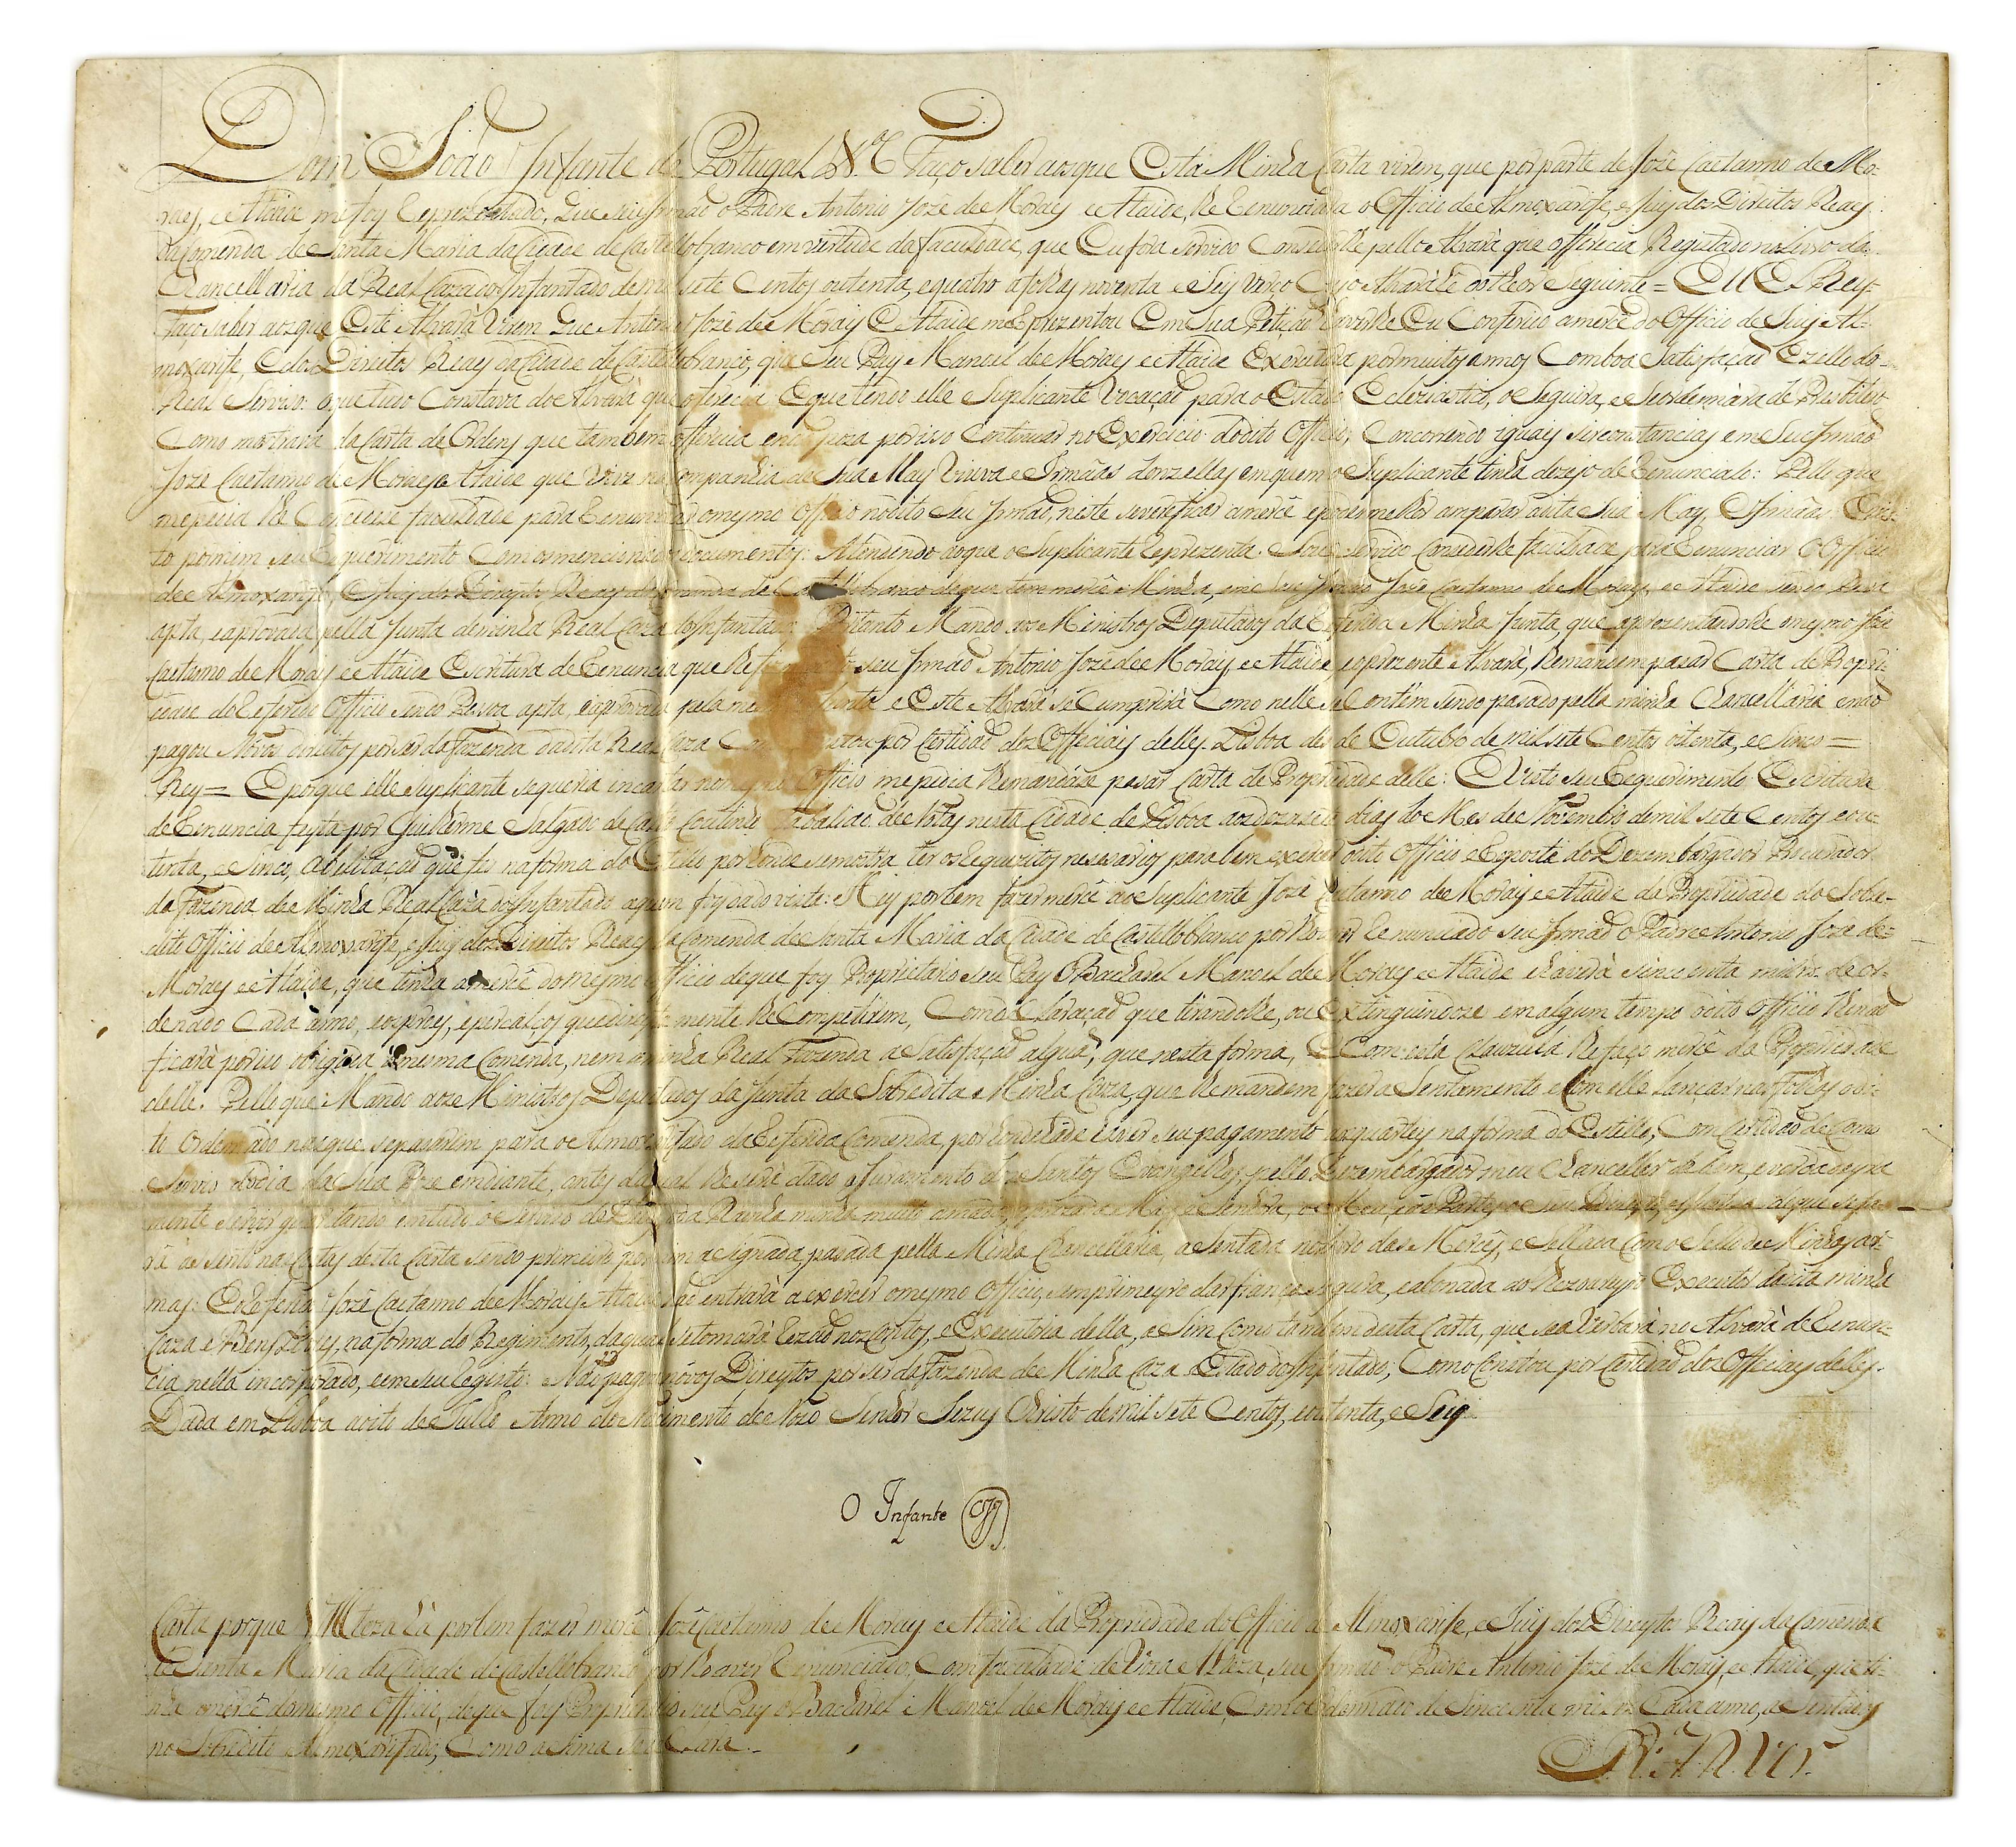 Dom João Infante de Portugal &.ª Faço saber aos que Esta Minha Carta virem, que por parte de Jozê Caetanno de Mo-
raes, e Ataide me foy Reprezentado, que seu Irmaõ o Padre Antonio Jozê de Moraes e Ataide, lhe Renunciara o Officio de Almoxarife, e Juiz dos Direitos Reaes
da Comenda de Santa Maria da Cidade de Castellobranco em virtude da faculdade, que Eu fora Servido Conceder lhe pello Alvarà que offerecia Registado no Livro da
Chancellaria da Real Caza do Infantado de mil sete Centos outenta, e quatro a folhas noventa e Seis verso Cujo Alvarà hê do theor Seguinte = EU EL Rey
Faço saber aos que Este Alvarà Virem Que Antonio Jozê de Moraes e Ataide me Reprezentou Em Sua Petiçaõ haver lhe Eu Conferido a mercê do Officio de Juiz Al-
moxarife, e dos Direitos Reaes da Cidade de Castellobranco, que Seu Pay Manoel de Moraes e Ataide Exercitara por muitos annos Com boa Satisfaçaõ E zello do
Real Serviso: o que tudo Constava do Alvarà que offerecia E que tendo elle Suplicante Vocaçaõ para o Estado Ecleziastico, o Seguira, e Se ordennàra de Presbitero
Como mostrava da Carta de Ordens que tambem offerecia e naõ podia por iso Continuar no Exercicio do dito Officio, Concorrendo iguaes sirconstancias em Seu Irmaõ
Jozê Caetanno de Moraes e Ataide que Vive na Companhia de Sua May Viuva e Irmãas donzellas em quem o Suplicante tinha dezejo de Renunciało: Pello que
me pedia lhe Concedese faculdade para Renunciar o mesmo Officio no dito Seu Irmaõ, neste severeficar a mercê e poderem elles amparar a dita Sua May, e Irmãas: E vis-
to por mim seu Requerimento Com os mencionados documentos: Atendendo ao que o Suplicante Reprezenta: Sou Servido Conceder lhe faculdade para Renunciar o Officio
de Almoxarife, e Juiz dos Direytos Reaes da Comenda de Castellobranco de que tem mercê Minha, em Seu Irmaõ Jozê Caetanno de Moraes, e Ataide sendo Pesoa
apta, e aprovada pella Junta de minha Real Caza do Infantado: Portanto Mando aos Ministros Deputados da Referida Minha Junta, que aprezentandolhe o mesmo Jozê
Caetanno de Moraes e Ataide Escritura de Renuncia que lhe fizer o dito seu Irmaõ Antonio Jozê de Moraes, e Ataide, e o prezente Alvarà, lhe mandem pasar Carta de Proprie-
dade do Referido Officio sendo Pesoa apta, e aprovada pela mesma Junta e Este Alvarà se Cumprirà Como nelle se Contêm sendo pasado pella minha Chancellaria e naõ
pagou Novos direitos por ser da Fazenda da dita Real Caza Como Constou por Certidaõ dos Officiaes delles. Lisboa des de Outubro de mil sete Centos oitenta, e Sinco =
Rey = E porque elle Suplicante se queria incartar no mesmo Officio me pedia lhe mandàse pasar Carta de Propriedade delle: E Visto seu Requerimento, Escritura
de Renuncia feyta por Guilherme Salgado de Castro Coutinho Tabaliaõ de Notas nesta Cidade de Lisboa aos dezaseis dias do Mes de Novembro de mil sete Centos e ou-
tenta, e Sinco, abilitaçaõ que fes na forma do Estillo por donde se mostra ter os Requezitos nesesarios para bem exercer o dito Officio e Reposta do Dezembargador Procurador
da Fazenda de Minha Real Caza do Infantado a quem foy dado vista: Hey por bem fazer mercê ao Suplicante Jozê Caetanno de Moraes e Ataide da Propriedade do Sobre-
dito Officio de Almoxarife, e Juiz dos Direitos Reaes da Comenda de Santa Maria da Cidade de Castellobranco por lho haver Renunciado seu Irmaõ o Padre Antonio Jozê de
Moraes e Ataide, que tinha a mercê do mesmo Officio de que foy Proprietario seu Pay o Bacharel Manoel de Moraes e Ataide e haverà Sincoenta mil rs. de or-
denado Cada anno, e os proes, e percalços que direytamente lhe Competirem, Com declaraçaõ que tirandolhe, ou Extinguindose em algum tempo o dito Officio lhe naõ
ficarà por iso obrigada a mesma Comenda, nem a minha Real Fazenda a Satisfaçaõ algũa, que nesta forma, e Com esta Clauzula lhe faço mercê da Propriedade
delle. Pello que Mando aos Ministros Deputados da Junta da Sobredita Minha Caza, que lhe mandem fazer a Sentamento e Com elle lançar nas folhas o di-
to Ordennado nas que se pasarem para o Almoxarifado da Referida Comenda por donde hade haver seu pagamento aos quarteis na forma do Estillo, Com Certidaõ de Como
Servio do dia da Sua Pose em diante, antes da qual lhe serà dado o Juramento dos Santos Evangelhos pello Dezembargador meu Chanceller de bem, e verdadeyra
mente Servir guardando em tudo o Serviso de Deos e da Rainha minha muito amada, e prezada May, e Senhora, o Meu, e às Partes o seu Direito, e Justiça de que se fa-
rà asento nas Costas desta Carta sendo primeiro por mim asignada, pasada pella Minha Chancellaria, asentada no Livro das Mercês, e Sellada Com o Sello de Minhas ar-
mas: E o Referido Jozê Caetanno de Moraes e Ataide naõ entrarà a exercer o mesmo Officio, sem primeyro dar fiança segura, e abonada ao Thezoureyro Executor da dita minha
Caza e Bens Livres, na forma do Regimento, da qual se tomarà Rezaõ nos Contos, e Executoria della, a Sim Como tambem desta Carta, que se a Verbarà no Alvarà de Renun-
cia nella incorporado, e em seu Registo: Naõ pagou novos Direytos por ser da Fazenda de Minha Caza e Estado do Infantado; Como Constou por Certidaõ dos Officiaes delles.
Dada em Lisboa a oito de Julho Anno do Nacimento de Noso Senhor Jezus Christo de mil sete Centos, e outenta, e Seis
O Infante
Carta porque V. Alteza hà por bem fazer mercê a Jozê Caetanno de Moraes e Ataide da Propriedade do Officio de Almoxarife, e Juiz dos Direytos Reaes da Comenda
de Santa Maria da Cidade de Castellobranco por lho aver Renunciado, Com faculdade de Vosa Alteza, seu Irmaõ o Padre Antonio Jozê de Moraes, e Ataide, que ti-
nha a mercê do mesmo Officio, de que foy Proprietario seu Pay o Bacharel Manoel de Moraes e Ataide, Com o ordennado de Sincoenta mil rs. Cada anno, a Sentados
no Sobredito Almoxarifado, Como a Sima se declara.